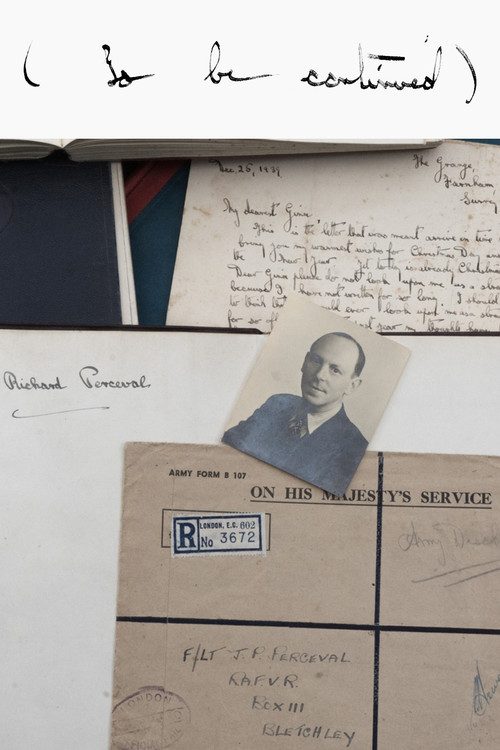 ( To be continued )
Dec. 26, 1939
The Grange,
Farnham,
Surrey
My dearest Girie,
This is the letter that was meant arrive in time
bring you my warmest wishes for Christmas Day and
the New Year. Yet to-day is already Christmas
Dear Girie please do not look upon me as a
because I have not written for so long. I should
to think that would ever look upon me as a
for so year my thoughts have
Richard Perceval
ARMY FORM B 107
ON HIS MAJESTY'S SERVICE
R LONDON, E.C. 602
No 3672
Army
F/LT J. P. PERCEVAL
R.A.F.V.R.
BOX III
BLETCHLEY
LONDON